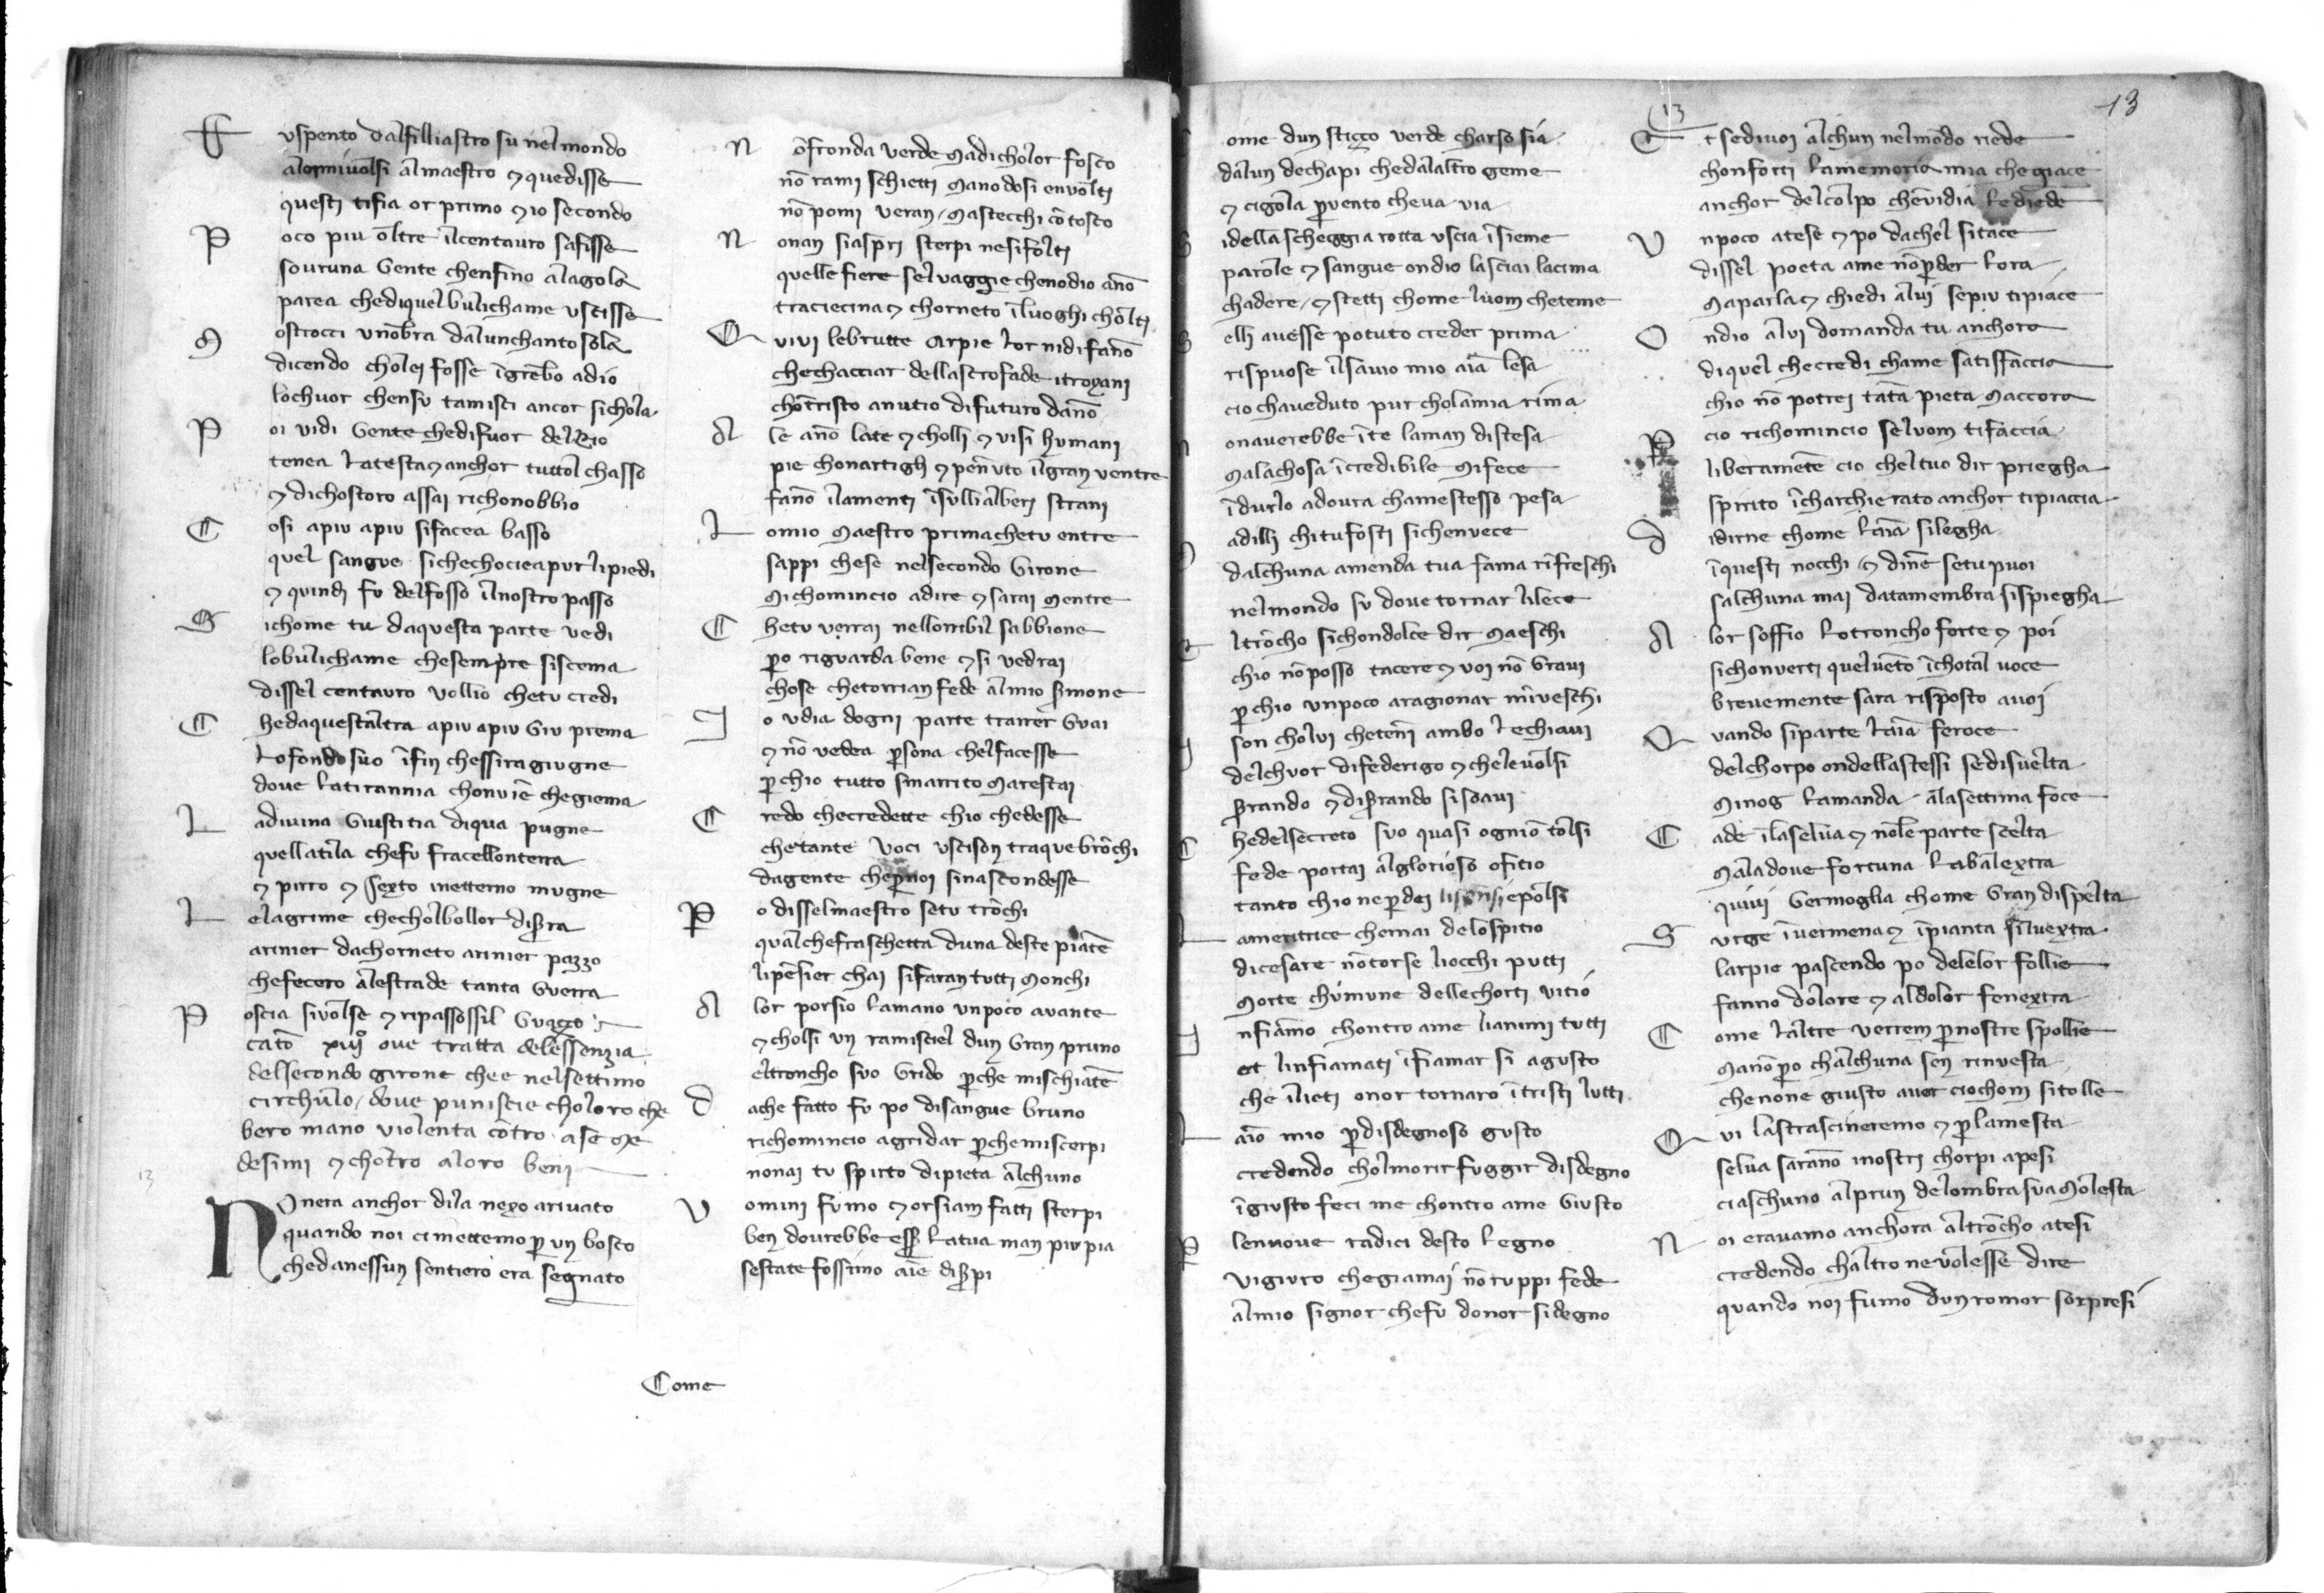 F uspento dalfilliastro su nelmondo
alormivolsi almaestro ⁊ quedisse
questi tifia or primo ⁊ io secondo
P oco piu oltre ilcentauro safisse
souruna Gente chenfino alagola
parea chediquel bulichame uscisse
M ostrocci unōbra dalunchanto sola
dicendo cholei fosse ī grēbo adio
lochuor chensu tamisci ancor sichola
P oi uidi Gente chedifuor delRio
tenea Latesta ⁊ anchor tuttol chasso
⁊ dichostoro assai richonobbio
C osi apiu apiu sifacea basso
quel sangue sichechocieapur lipiedi
⁊ quindi fu delfosso ilnostro passo
S ichome tu daquesta parte uedi
lobulichame chesempre siscema
dissel centauro uollio chetu credi
C hedaquestaltra apiu apiu Giu prema
Lofondo suo īfin chessiragiugne
doue Latirannia chonuiē chegiema
L adiuina Giustitia diqua pugne
quellatila chefu fracellonterra
⁊ pirro ⁊ sexto inetterno mugne
L elagrime checholbollor disra
arinier dachorneto arinier pazzo
chefecero alestrade tanta Guerra
P oscia siuolse ⁊ ripassossil Guazzo
catō xiij° oue tratta delessenzia
delsecondo girone chee nelsettimo
circhulo, doue puniscie choloro che
bero mano uiolenta cōtro ase me
desimi ⁊ chōtro aloro beni
13
N Onera anchor dila nexo ariuato
quando noi cimettemo ꝑ un bosco
chedanessun sentiero era segnato
N ōfronda uerde Madicholor fosco
nō rami schietti Mano dosi enuolti
nō pomi ueran, Mastecchi cōtosco
N onan siaspri sterpi nesifolti
quelle fiere seluaggie chenodio anō
traciecina ⁊ chorneto iluoghi cholti
Q uiui lebrutte arpie lor nidi fanō
chechacciar dellastrofade itroyani
chōtristo anutio difuturo danō
A le anō late ⁊ cholli ⁊ uisi humani
pie chonartigli ⁊ penuto ilgran uentre
fanō ilamenti īsulli alberi strani
L omio Maestro primachetu entre
sappi chese nelsecondo Girone
Michomincio adire ⁊ sarai Mentre
C hetu uerrai nellorribil sabbione
ꝑo riguarda bene ⁊ si uedrai
chose chetorrian fede almio sermone
I o udia dogni parte trarrer Guai
⁊ nō uedea ꝑsona chelfacesse
ꝑchio tutto smarrito Marestai
C redo checredette chio chedesse
chetante uoci uscison traque brōchi
dagente cheꝑnoi sinascondesse
P o disselmaestro setu trōchi
qualchefraschetta duna deste piātē
lipēsier chai sifaran tutti Monchi
A lor porsio Lamano unpoco auante
⁊ cholsi un ramisciel dun Gran pruno
eltroncho suo Grido ꝑche mischiātē
D ache fatto fu po disangue bruno
richomincio agridar ꝑchemiscerpi
nonai tu spirto dipieta alchuno
U omini fumo ⁊ orsiam fatti sterpi
ben dourebbe essꝑ Latua man piu pia
sestate fossimo aīe disꝑpi
Come
13
13
ome dun stizzo uerde charso sia
dalun dechapi chedalaltro geme
⁊ cigola ꝑuento cheua uia
S idella scheggia rotta uscia īsieme
parole ⁊ sangue ondio lasciai lacima
chadere, ⁊ stetti chome luom cheteme
S elli auesse potuto creder prima
rispuose ilsauio mio aīa lesa
cio chaueduto pur cholamia rima
onauerebbe īte laman distesa
Malachosa īcredibile Mifece
īdurlo adoura chamestesso pesa
adilli chitufosti sichenuece
dalchuna amenda tua fama rifreschi
nelmondo su doue tornar lilece
E ltrōcho sichondolce dir Maeschi
chio nōposso tacere ⁊ uoi nō Graui
ꝑchio unpoco aragionar miueschi
I son cholui chetenī ambo Lechiaui
delchuor difederigo ⁊ chele uolsi
serrando ⁊ diserrando sisoaui
C hedelsecreto suo quasi ogniō tolsi
fede portai alglorioso ofitio
tanto chio neꝑdei lisōni epolsi
L ameritrice chemai delospitio
dicesare nōtorse liocchi putti
Morte chumune dellechorti uitio
I nfiāmo chontro ame lianimi tutti
et linfiamati īfiamar si agusto
che ilieti onor tornaro ī tristi lutti
L aīo mio ꝑdisdegnoso gusto
credendo cholmorir fuggir disdegno
īgiusto feci me chontro ame Giusto
P lenuoue radici desto Legno
uigiuro chegiamai nōruppi fede
almio signor chefu donor sidegno
E t sediuoi alchun nelmōdo riede
chonforti Lamemoria mia chegiace
anchor delcolpo chēuidia Lediede
U npoco atese ⁊ po dachel sitace
dissel poeta ame nōꝑder Lora
Maparla ⁊ chiedi alui sepiu tipiace
O ndio alui domanda tu anchora
diquel checredi chame satisfaccia
chio nō potrei tāta pieta Maccora
P cio richomincio seluom tifaccia
liberamētē cio cheltuo dir priegha
spirito īcharchierato anchor tipiaccia
D idirne chome Laīa silegha
īquesti nocchi ⁊ dinē setu puoi
salchuna mai datamembra sispiegha
A lor soffio Lotroncho forte ⁊ poi
sichonuerti queluēto īchotal uoce
breuemente sara risposto auoi
Q uando siparte Laīa feroce
delchorpo ondellastessi sedisuelta
Minos Lamanda alasettima foce
C ade īlaselua ⁊ nōle parte scelta
Maladoue fortuna Labalextra
quiui Germoglia chome Gran dispelta
S urge īuermena ⁊ īpianta siluextra
larpie pascendo po delelor follie
fanno dolore ⁊ aldolor fenextra
C ome laltre uerrem ꝑnostre spollie
Manōꝑo chalchuna sen riuuesta
chenone giusto auer ciochom sitolle
Q ui lastrascineremo ⁊ ꝑlamesta
selua sarano inostri chorpi apesi
ciaschuno alprun delombra sua Molesta
N oi erauamo anchora altrōcho atesi
credendo chaltro neuolesse dire
quando noi fumo dunromor sorpresi